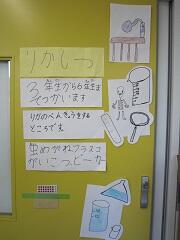 りかしつ
3年生から6年生ま
でつかいます
りかのべんきょうをする
ところです。
虫めがねフラスコ
がいこつ、ビーカー